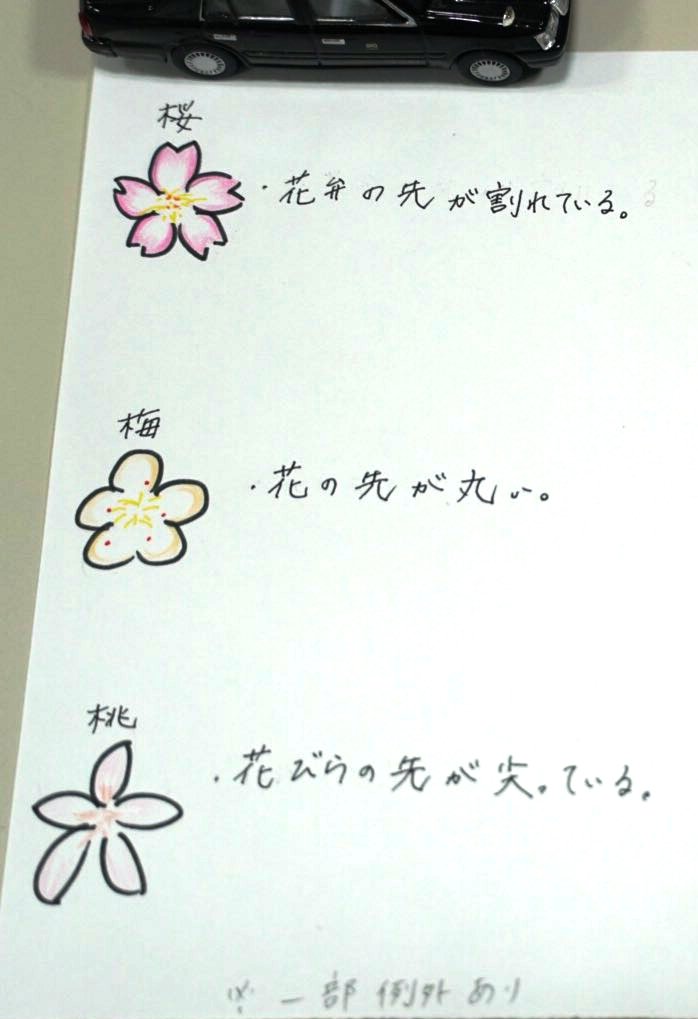 桜
・花弁の先が割れている。
梅
・花の先が丸い。
桃
・花びらの先が尖っている。
※一部例外あり